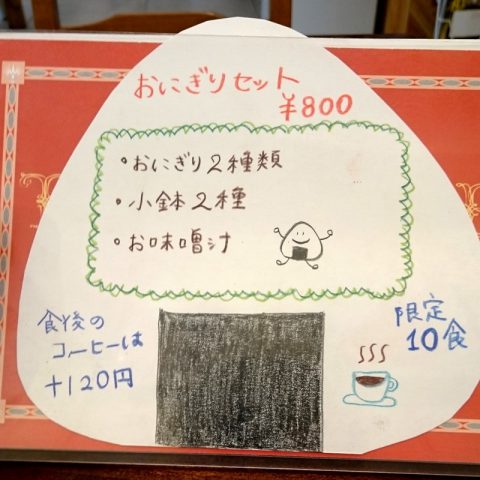 おにぎりセット
¥800
・おにぎり2種類
・小鉢2種
・お味噌汁
食後の
コーヒーは
+120円
限定
10食